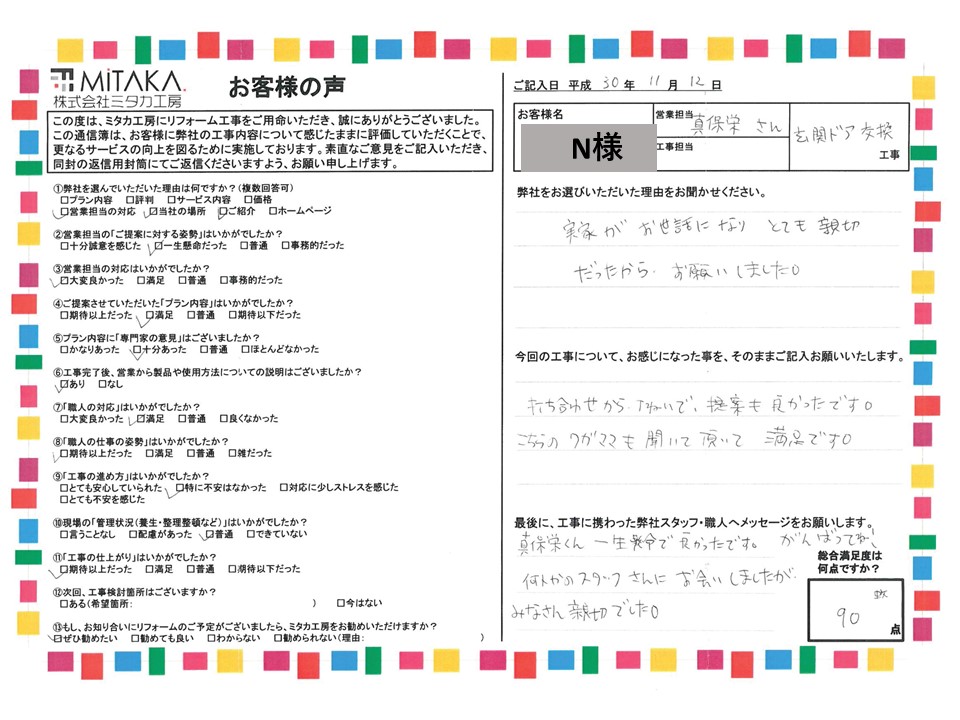 MiTAKA.
株式会社ミタカ工房
お客様の声
この度は、ミタカ工房にリフォーム工事をご用命いただき、誠にありがとうございました。
この通信簿は、お客様に弊社の工事内容について感じたままに評価していただくことで、
更なるサービスの向上を図るために実施しております。素直なご意見をご記入いただき、
同封の返信用封筒にてご返信くださいますよう、お願い申し上げます。
①弊社を選んでいただいた理由は何ですか?(複数回答可)
□プラン内容 □評判 □サービス内容 □価格
☑営業担当の対応 ☑当社の場所 ☑ご紹介 □ホームページ
②営業担当の「ご提案に対する姿勢」はいかがでしたか?
□十分誠意を感じた ☑一生懸命だった □普通 □事務的だった
③営業担当の対応はいかがでしたか?
☑大変良かった □満足 □普通 □事務的だった
④ご提案させていただいた「プラン内容」はいかがでしたか?
□期待以上だった ☑満足 □普通 □期待以下だった
⑤プラン内容に「専門家の意見」はございましたか?
□かなりあった ☑十分あった □普通 □ほとんどなかった
⑥工事完了後、営業から製品や使用方法についての説明はございましたか?
☑あり □なし
⑦「職人の対応」はいかがでしたか?
□大変良かった ☑満足 □普通 □良くなかった
⑧「職人の仕事の姿勢」はいかがでしたか?
☑期待以上だった □満足 □普通 □雑だった
⑨「工事の進め方」はいかがでしたか?
□とても安心していられた ☑特に不安はなかった □対応に少しストレスを感じた
□とても不安を感じた
⑩現場の「管理状況(養生・整理整頓など)」はいかがでしたか?
□言うことなし □配慮があった ☑普通 □できていない
⑪「工事の仕上がり」はいかがでしたか?
☑期待以上だった □満足 □普通 □期待以下だった
⑫次回、工事検討箇所はございますか?
□ある(希望箇所: ) □今はない
⑬もし、お知り合いにリフォームのご予定がございましたら、ミタカ工房をお勧めいただけますか?
☑ぜひ勧めたい □勧めても良い □わからない □勧められない(理由: )
ご記入日 平成 30 年 11 月 12 日
お客様名
N様
営業担当
真保栄 さん
工事担当
玄関ドア交換
工事
弊社をお選びいただいた理由をお聞かせください。
実家が お世話になり とても 親切
だったから、お願いしました。
今回の工事について、お感じになった事を、そのままご記入お願いいたします。
打ち合わせから、ていねいで、提案も良かったです。
こちらのワガママも 聞いて 頂いて 満足です。
最後に、工事に携わった弊社スタッフ・職人へメッセージをお願いします。
真保栄くん 一生懸命で良かったです。がんばってね!
何人かのスタッフさんに お会いしましたが、
みなさん親切でした。
総合満足度は
何点ですか?
90
点